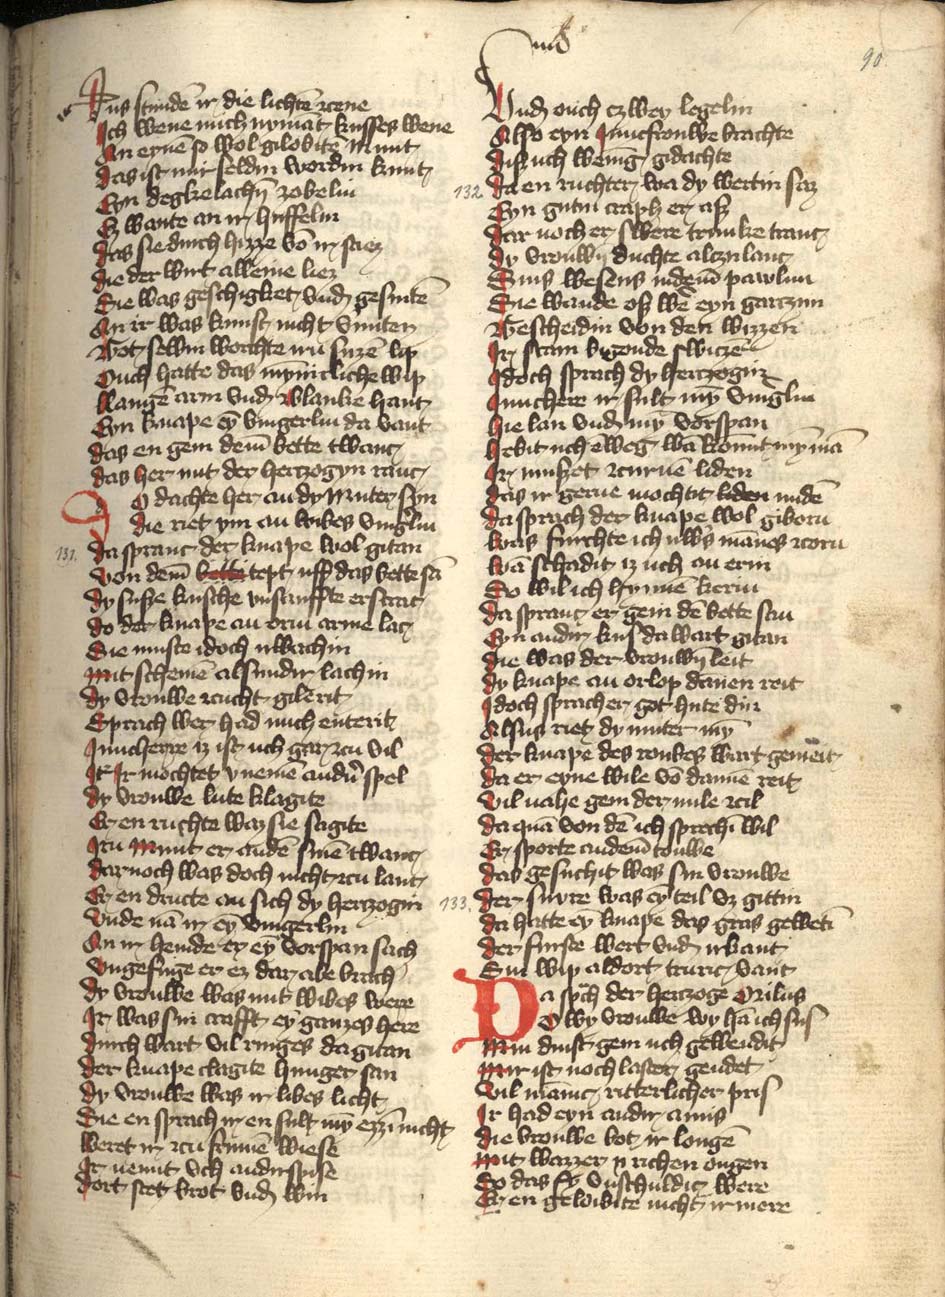 90
Sus stunde͞ ir die lichte͞ zcene
Ich wene mich nyma͞t kusses wene
An eyne͞ so wol gilobite͞ Munt
das ist mir seldin wordin kunt
Eyn degkelachy͞ zobelin
Ez wante an ir huffelin
das sie durch hizze vo͞ ir stiez
die der wirt alleine liez
Sie was geschigket vnd gesnite͞
An ir was kunst nicht v͞miten
Got selwin worchte iru͞ suze͞ lip
Ouch hatte das my͞nicliche wip
llange͞ arm vnd Blanke hant
Eyn knape ey͞ vingerlin da vant
das en gem deme͞ bette twanc
das her mit der hertzogyn ranc
Do dachte her an dy Muter syn
die riet ym an wibes ving͛lin
131.
da spranc der knape wol gitan
von deme͞ bette tept uff das bette sa͞
dy susze kusche vnsanffte erscrac
do der knape an oriu arme lac
Sie muste idoch irwachin
mit scheme͞ alsundir lachin
dy vrouwe zcucht gile͛rit
Sprach wer had mich enterit
Juncherre iz ist uch gar zcu vil
Ir mochtet y neme͞ and͛ spel
dy vrouwe lute klagite
Er en ruchte waz sie sagite
Iru Munt er an de͞ sine͞ twanc
dar noch was doch nicht zcu lanc
Er en dructe an sich dy hertzogin
vnde na͞ ir ey͞ vingerlin
An ir hemde er ey͞ vorspan sach
vngefuge er ez dar abe brach
dy vrouwe was mit wibes were
Ir was sin crafft ey͞ ganzes here
durch wart vil ringes da gitan
der knape clagite hunger san
dy vrouwe was ir libes licht
Sie en sprach ir en sult my͞ ezzi͞ nicht
weret ir zcu frume͞ wiese
Ir nemit vch andir spise
dort stet brot vnd win
vnd ouch czwey legelin
Also eyn Juncfrouwe brachte
diß uch wenig gidachte
132
da en ruchter wa dy wertin saz
Eyn gutin craph er asz
dar noch er swere trunke tranc
dy vrouwi͞ duchte alczu lanc
Sins wesens in deme͞ pawlun
Sie wande osz we͛ eyn garczun
Gescheidin von den wizzen
Ir scam bigonde swicze͞
Idoch sprach dy hertzogin
Juncherre ir sult my͞ ving͛lin
hie lan vnd my͞ vorspan
hebit uch eweg wa͞ komit my͞ ma͞
Ir muszet zcurne͞ liden
das ir gerne mochtit liden mide͞
da sprach der knape wol giboru
was furchte ich uw͛s manes zcorn
wa͞ schadit iz uch an ern
So wil ich hynne͞ kerin
da spranc er gem de͞ bette san
Eyn andir kus da wart gitan
die was der vrouwi͞ leit
dy knape an orlop danen reit
Idoch sprach er got hute din
Alsus riet dy muter my͞
der knape des roubes wart gemeit
da er eyne wile vo͞ danne͞ reit
vil nahe gem der mile zcil
da qua͞ von de͞ ich spreche͞ wil
Er sporte an deme͞ touwe
das gesuchit was sin vrouwe
133.
der snvre was ey͞ teil vz gittin
da hatte ey͞ knape das gras gewete͞
der furste wert vnd irkant
Sin wip aldort truric vant
Da sp͛ch der hertzoge Orilus
Owy vrouwe wy ha͞ ich sus
Min dinst gem uch gewendit
Mir ist noch laster gendet
vil ma͞nic ritterlicher pris
Ir had eyn andir amis
die vrouwe bot ir longe͞
mit wazzer richen ougen
So das sy vnschuldic were
Er en geloibite nicht ir mere